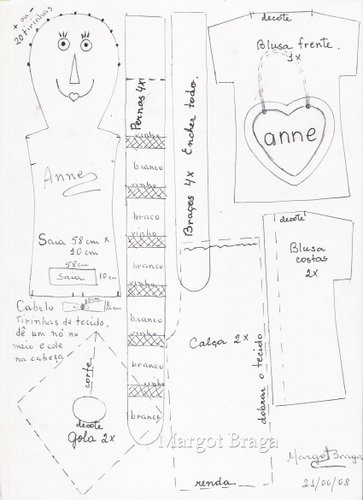 + ou -
20 tirinhas
Anne
Saia 58 cm x
10 cm
58cm
Saia
10 cm
Cabelo
10cm
Tirinhas de tecido.
dê um nó no
meio e cole
na cabeça
corte
decote
Gola 2x
Pernas 4x
vinho
branco
vinho
braco
vinho
branco
vinho
branco
vinho
branco
vinho
branco
Braços 4x Encher todo.
decote
Blusa frente.
1x
anne
decote
Blusa
costas
2x
Calça 2x
dobrar o tecido
renda
Margot Braga
Margot Braga
21/06/08